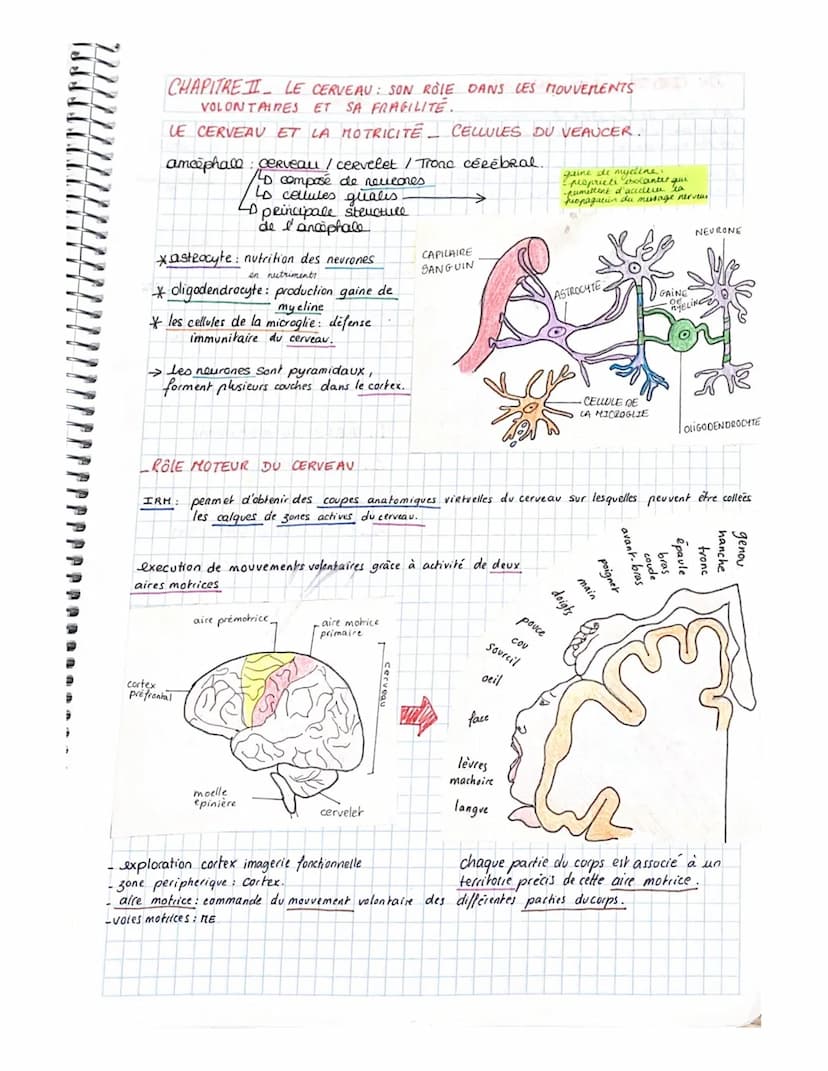 CHAPITRE II_ LE CERVEAU : SON RÔLE DANS LES MOUVEMENTS
VOLONTAIRES ET SA FRAGILITÉ.
LE CERVEAU ET LA MOTRICITÉ _ CELLULES DU VEAUCER.
amcéphale : cerveau / cervelet / Tronc cérébral.
↳ composé de neurones
↳ cellules gliales →
↳ principale structure
de l'amcéphale
gaine de myeline :
propriete isolantes qui
permettent d'accelerer la
propagation du message nerveux
* astrocyte : nutrition des neurones
en nutriments
* oligodendrocyte : production gaine de
myeline
* les cellules de la microglie : défense
immunitaire du cerveau.
→ Les neurones sont pyramidaux,
forment plusieurs couches dans le cortex.
CAPILAIRE
SANGUIN
ASTROCYTE
NEURONE
GAINE
DE
MYELINE
CELLULE DE
LA MICROGLIE
OLIGODENDROCYTE
_RÔLE MOTEUR DU CERVEAU
IRM : permet d'obtenir des coupes anatomiques virtuelles du cerveau sur lesquelles peuvent être collées
les calques de zones actives du cerveau.
execution de mouvements volontaires grâce à activité de deux
aires motrices
aire prémotrice
aire motrice
primaire
cortex
préfrontal
cerveau
moelle
épinière
cervelet
genou
hanche
tronc
épaule
bras
coude
avant-bras
poignet
main
doigts
pouce
cou
sourcil
oeil
face
lèvres
machoire
langue
- exploration cortex imagerie fonctionnelle
- zone peripherique : cortex.
- aire motrice : commande du mouvement volontaire des différentes parties du corps.
- voies motrices : ME
chaque partie du corps est associé à un
territoire précis de cette aire motrice.